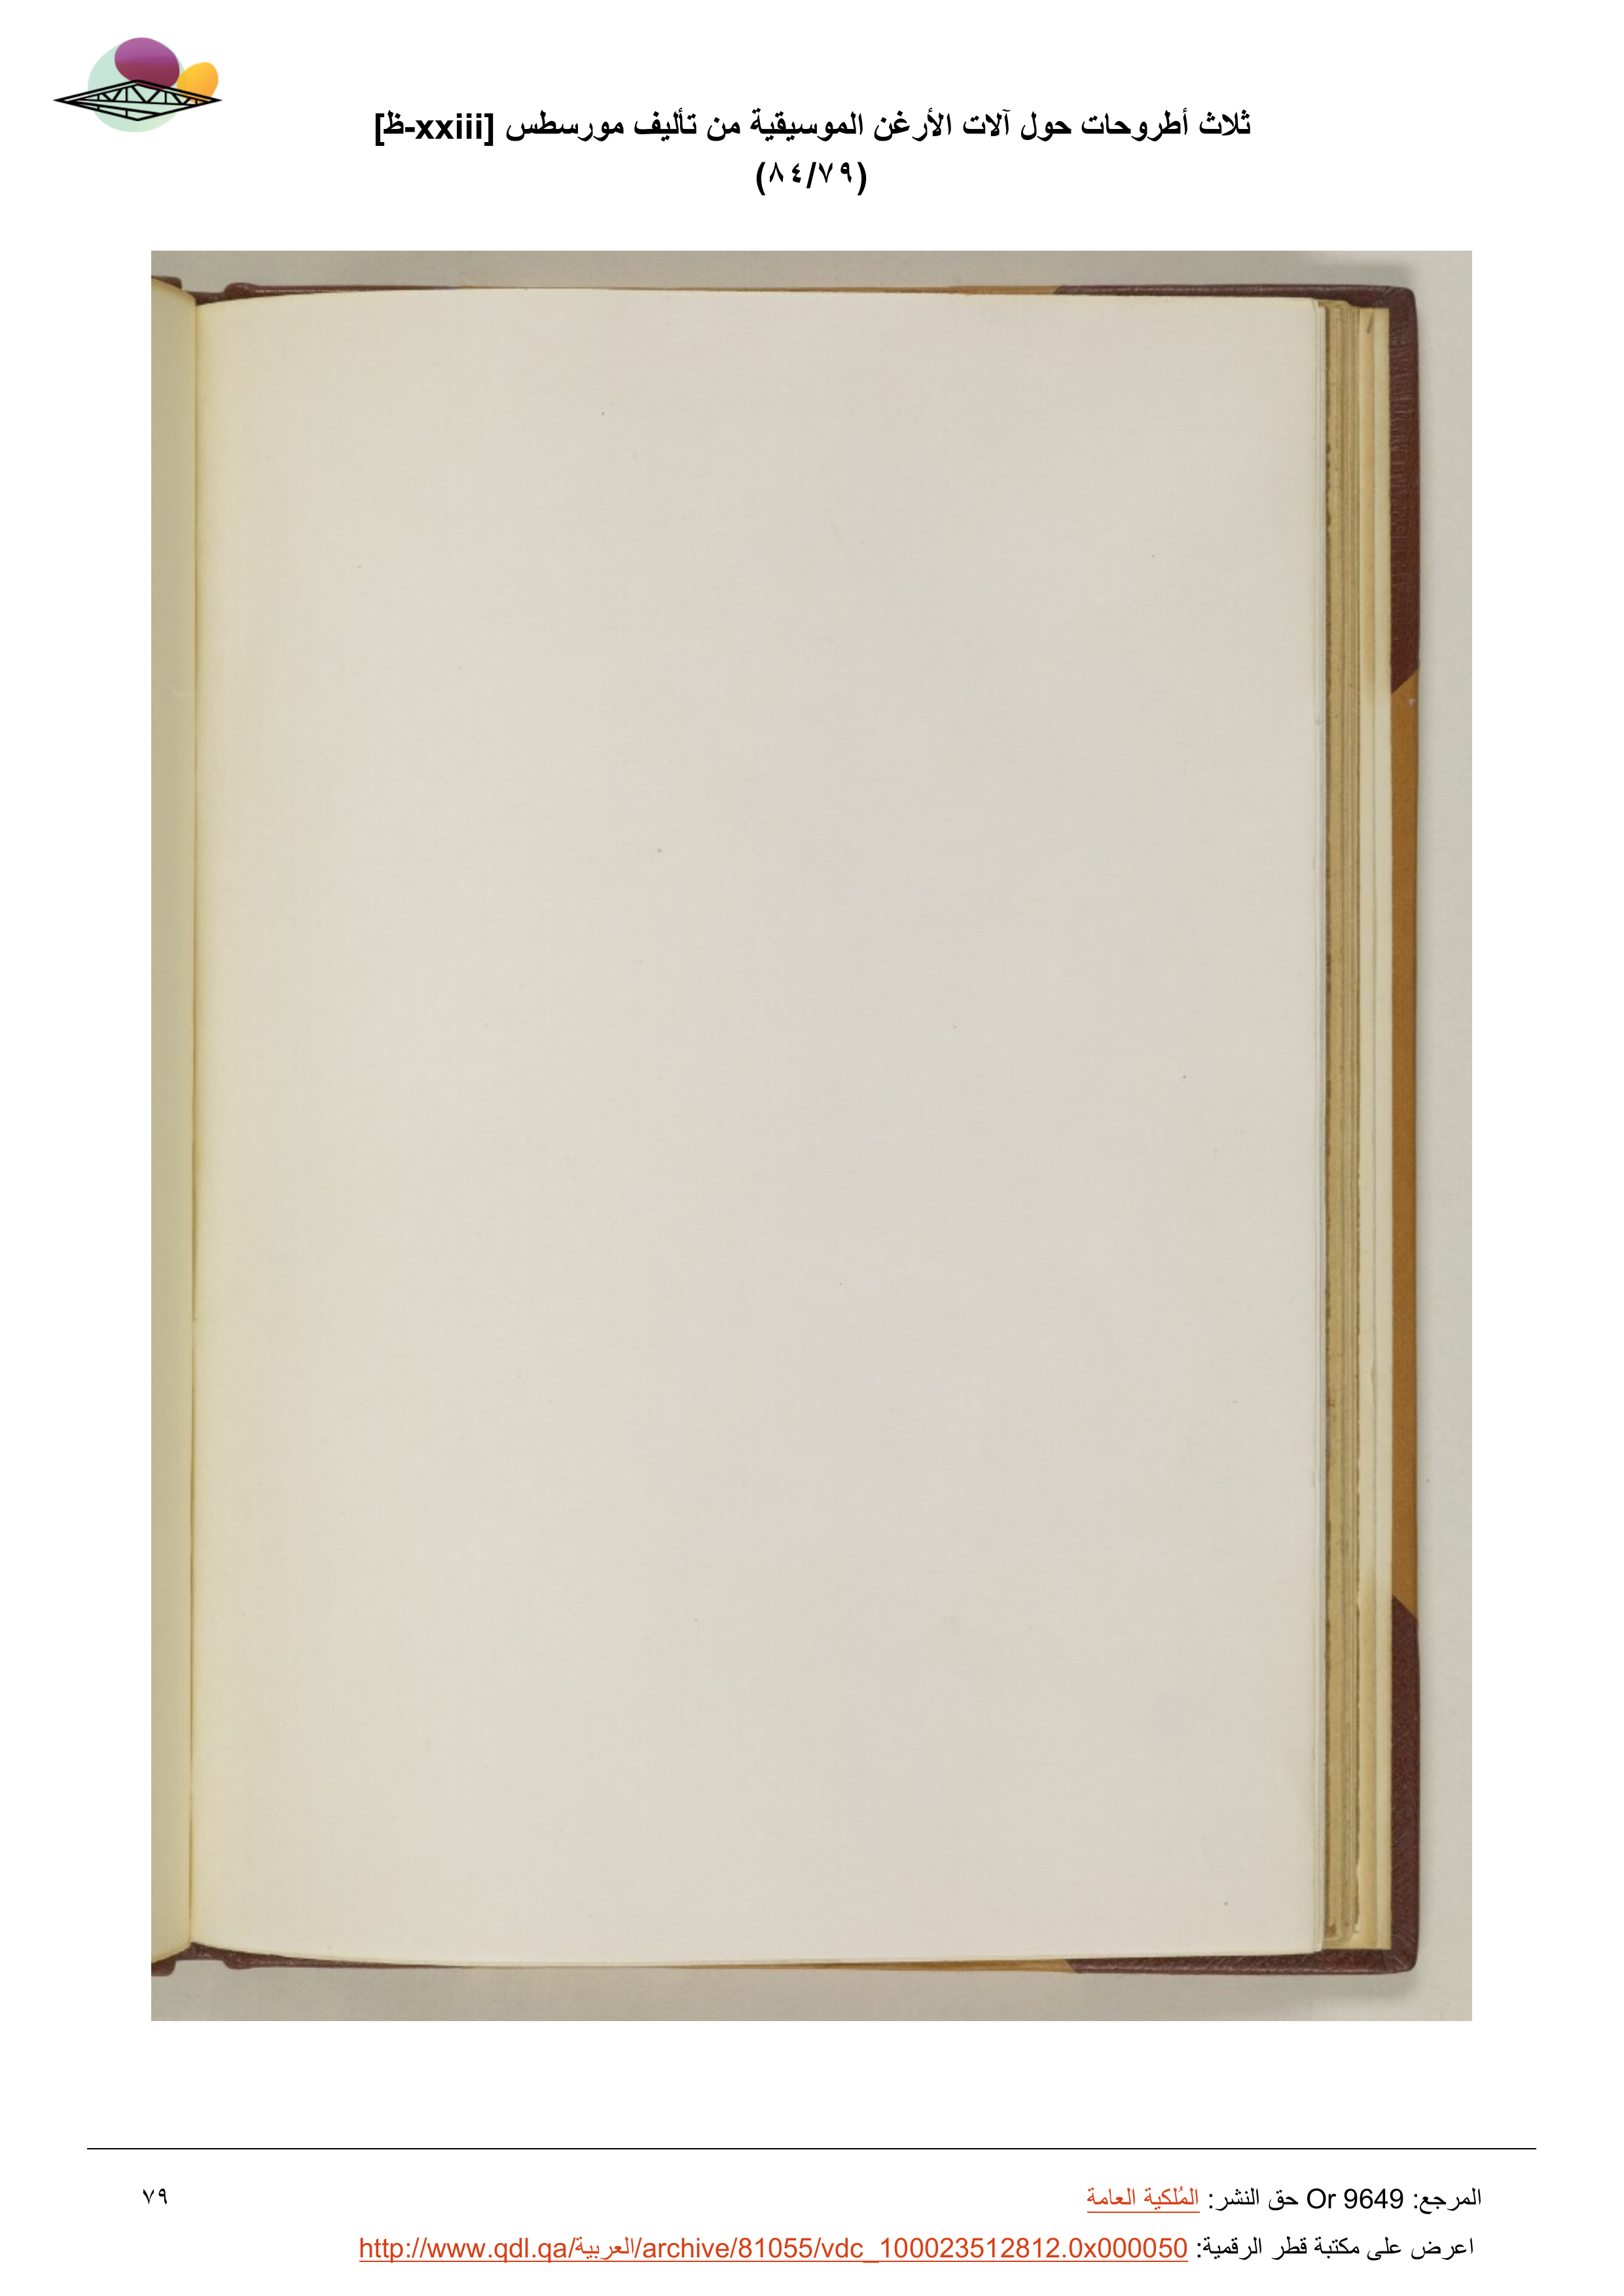 ثلاث أطروحات حول آلات الأرغن الموسيقية من تأليف مورسطس [xxiii-ظ]
(٨٤/٧٩)
المرجع: Or 9649 حق النشر: المُلكية العامة
٧٩
اعرض على مكتبة قطر الرقمية: http://www.qdl.qa/العربية/archive/81055/vdc_100023512812.0x000050